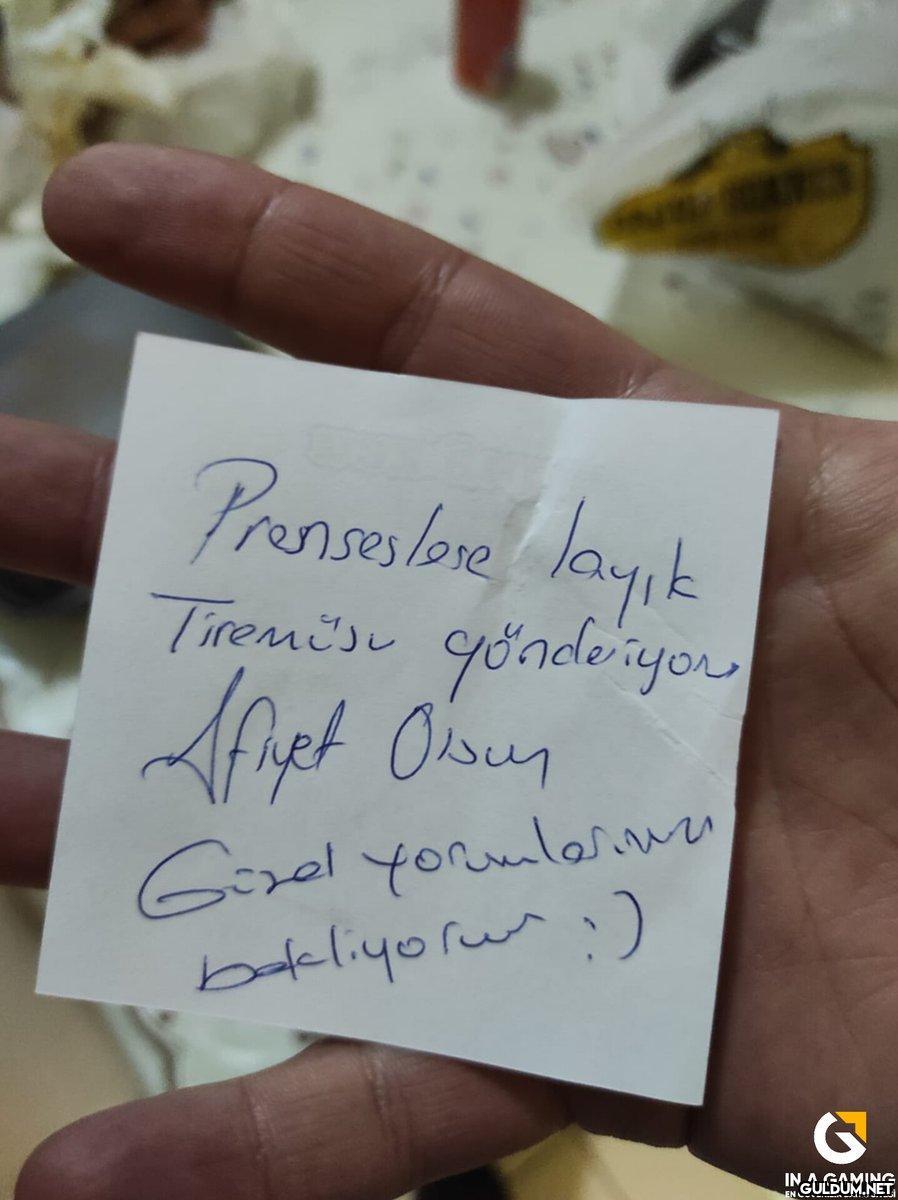 Prenseslere layık
Tiremüsu gönderiyorum
Afiyet Olsun
Güzel yorumlarınızı
bekliyorum :)
IN A GAMING
GULDUM.NET